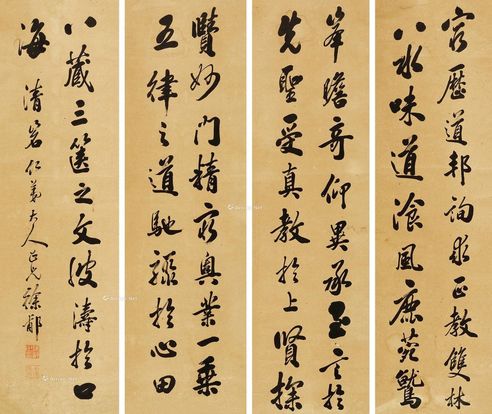 窮歷道邦詢求正教雙林
八水味道飡風鹿菀鷲
峯瞻奇仰異承至言於
先聖受真教於上賢探
賾妙門精窮奧業一乘
五律之道馳驟於心田
八藏三篋之文波濤於口
海
清箬仁弟大人正之徐郙